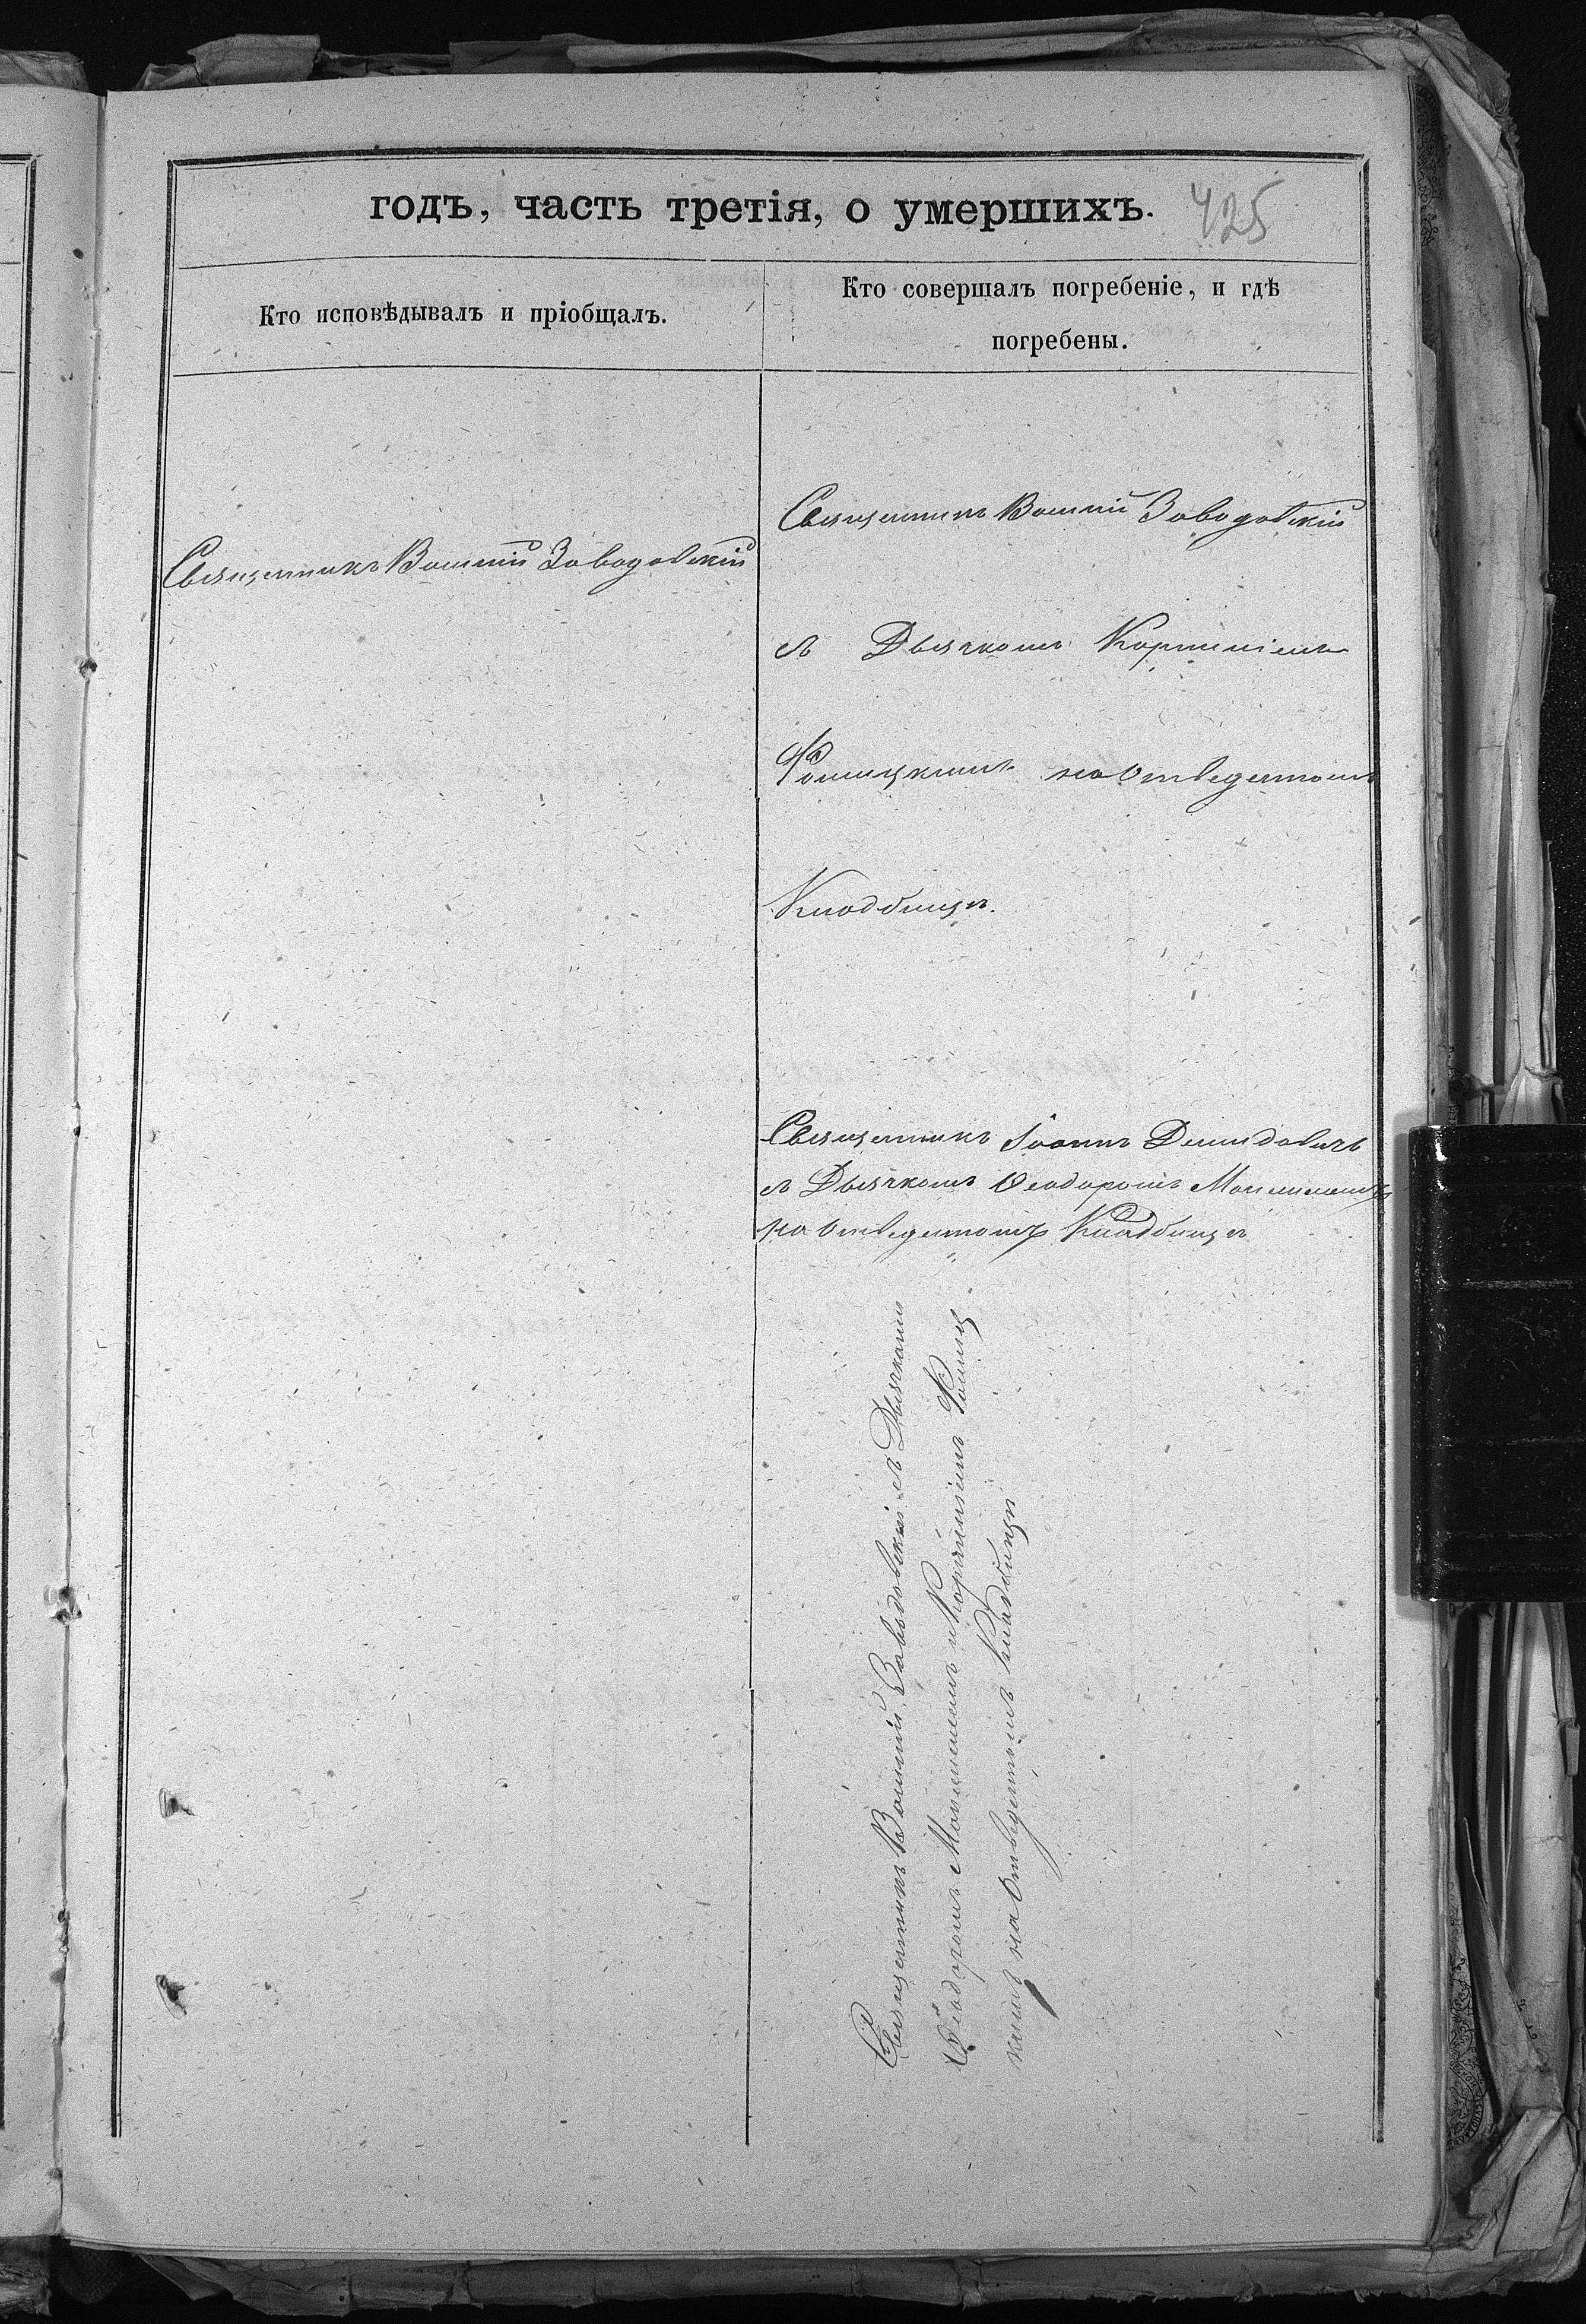 годъ, часть третія, о умершихъ.
425
Кто исповѣдывалъ и пріобщалъ.
Кто совершалъ погребеніе, и гдѣ
погребены.
Священникъ Василій Заводовскій
Священникъ Василій Заводовскій
съ Дьячкомъ Корниліемъ
Фомицкимъ на отведенномъ
Кладбищѣ.
Священникъ Іоаннъ Демидовичъ
съ Дьячкомъ Ѳеодоромъ
на отведенномъ Кладбищѣ
Священникъ Василій Заводовскій съ Дьячками
Ѳеодоромъ и Корниліемъ Фомиц
кимъ на отведенномъ Кладбищѣ